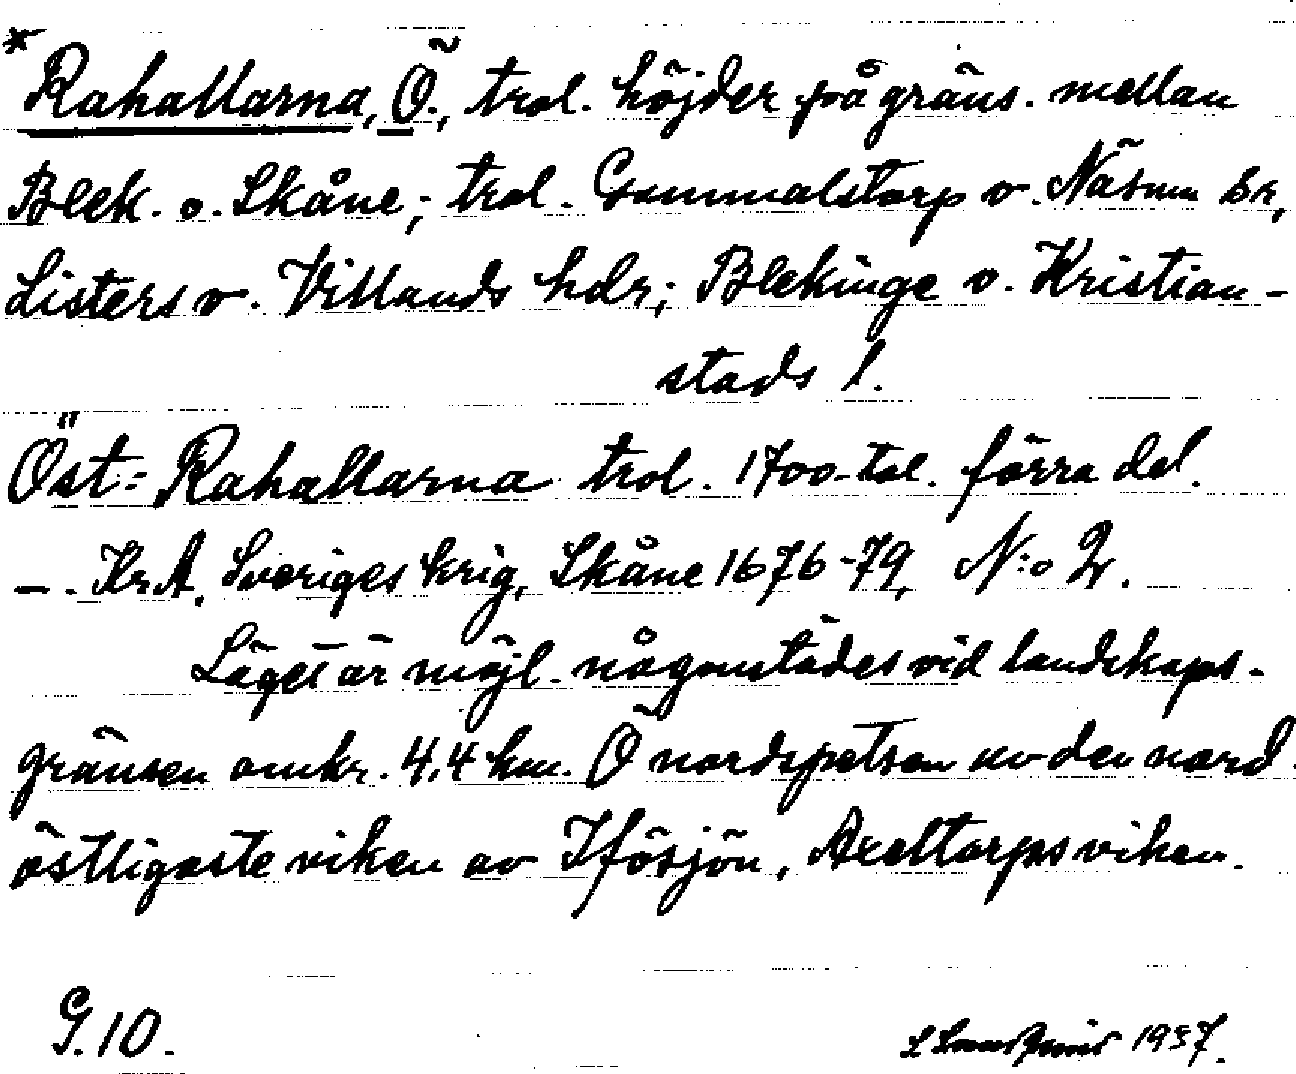 * Rahallarna, Ö., trol. höjder på gräns. mellan
Blek. o. Skåne; trol. Gammalstorp o. Näsum sr,
Listers o. Villands hdr; Blekinge o. Kristian-
stads l.
Öst=Rahallarna trol. 1700-tal. förra del.
-. Kr.A. Sveriges krig, Skåne 1676-79, N:o 2.
Läget är möjl. någonstädes vid landskaps-
gränsen omkr. 4,4 km. Ö nordspetsen av den nord
östligaste viken av Ifösjön, Axeltorpsviken.
G.10. 1937.